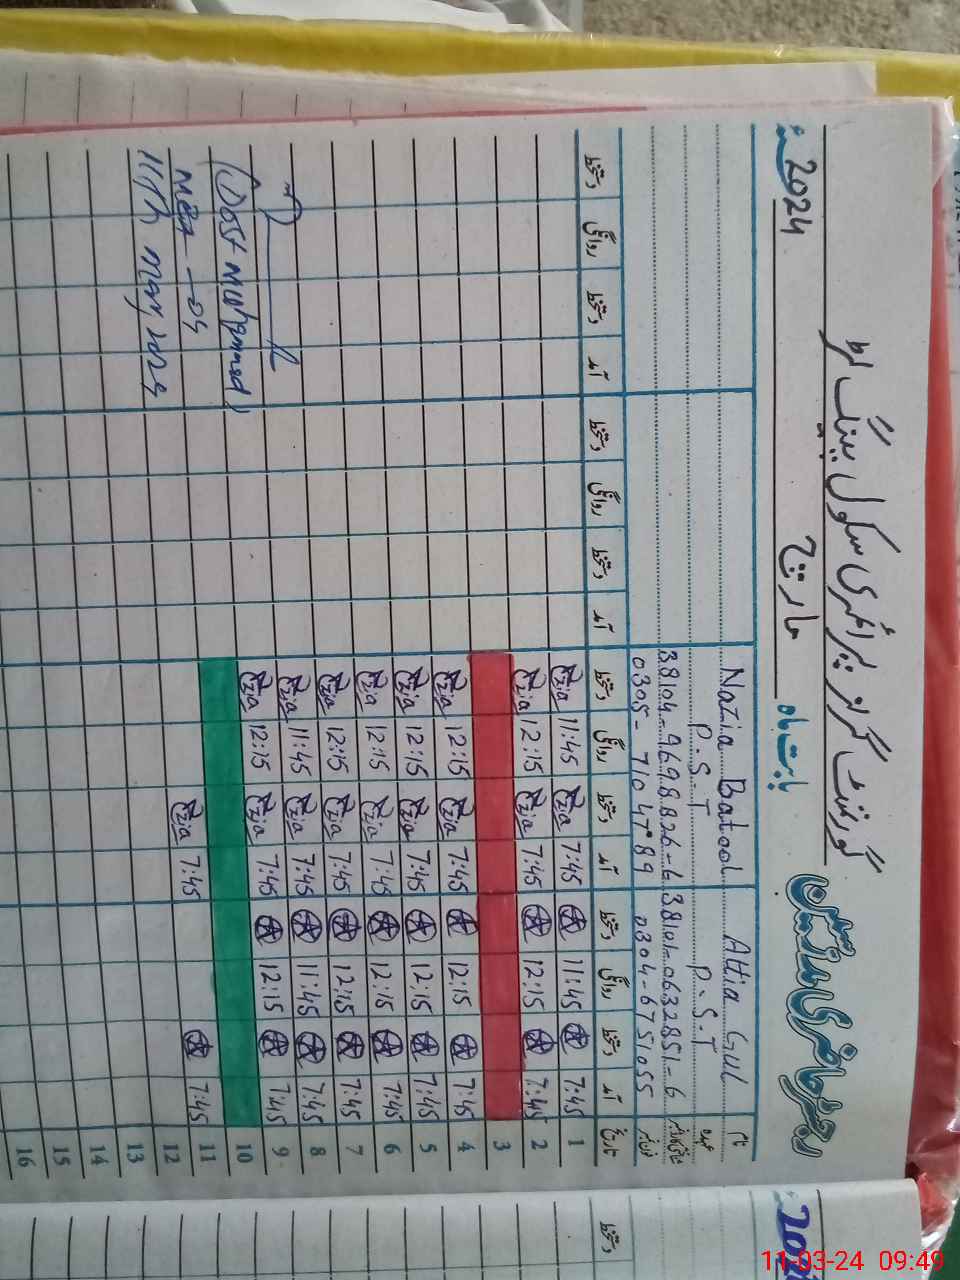 رجسٹر حاضری مدرسین
گورنمنٹ گرلز پرائمری سکول
بابت ماہ مارچ 2024
نام Attia Gul Nazia Batool
عہدہ P.S.T P.S.T
شناختی کارڈ نمبر 38101-0632851-6 38104-9698826-6
فون نمبر 0304-6751055 0305-7104789
تاریخ آمد دستخط روانگی دستخط آمد دستخط روانگی دستخط آمد دستخط روانگی دستخط آمد دستخط روانگی دستخط
1 7:45 A 11:45 A 7:45 Razia 11:45 Razia
2 7:45 A 12:15 A 7:45 Razia 12:15 Razia
3
4 7:45 A 12:15 A 7:45 Razia 12:15 Razia
5 7:45 A 12:15 A 7:45 Razia 12:15 Razia
6 7:45 A 12:15 A 7:45 Razia 12:15 Razia
7 7:45 A 12:15 A 7:45 Razia 12:15 Razia
8 7:45 A 11:45 A 7:45 Razia 11:45 Razia
9 7:45 A 12:15 A 7:45 Razia 12:15 Razia
10
11 7:45 A 7:45 Razia
12
13
14
15
16
(Dost Muhammad)
MEA-04
11th mar, 2024
دستخط
202
11-03-24 09:49